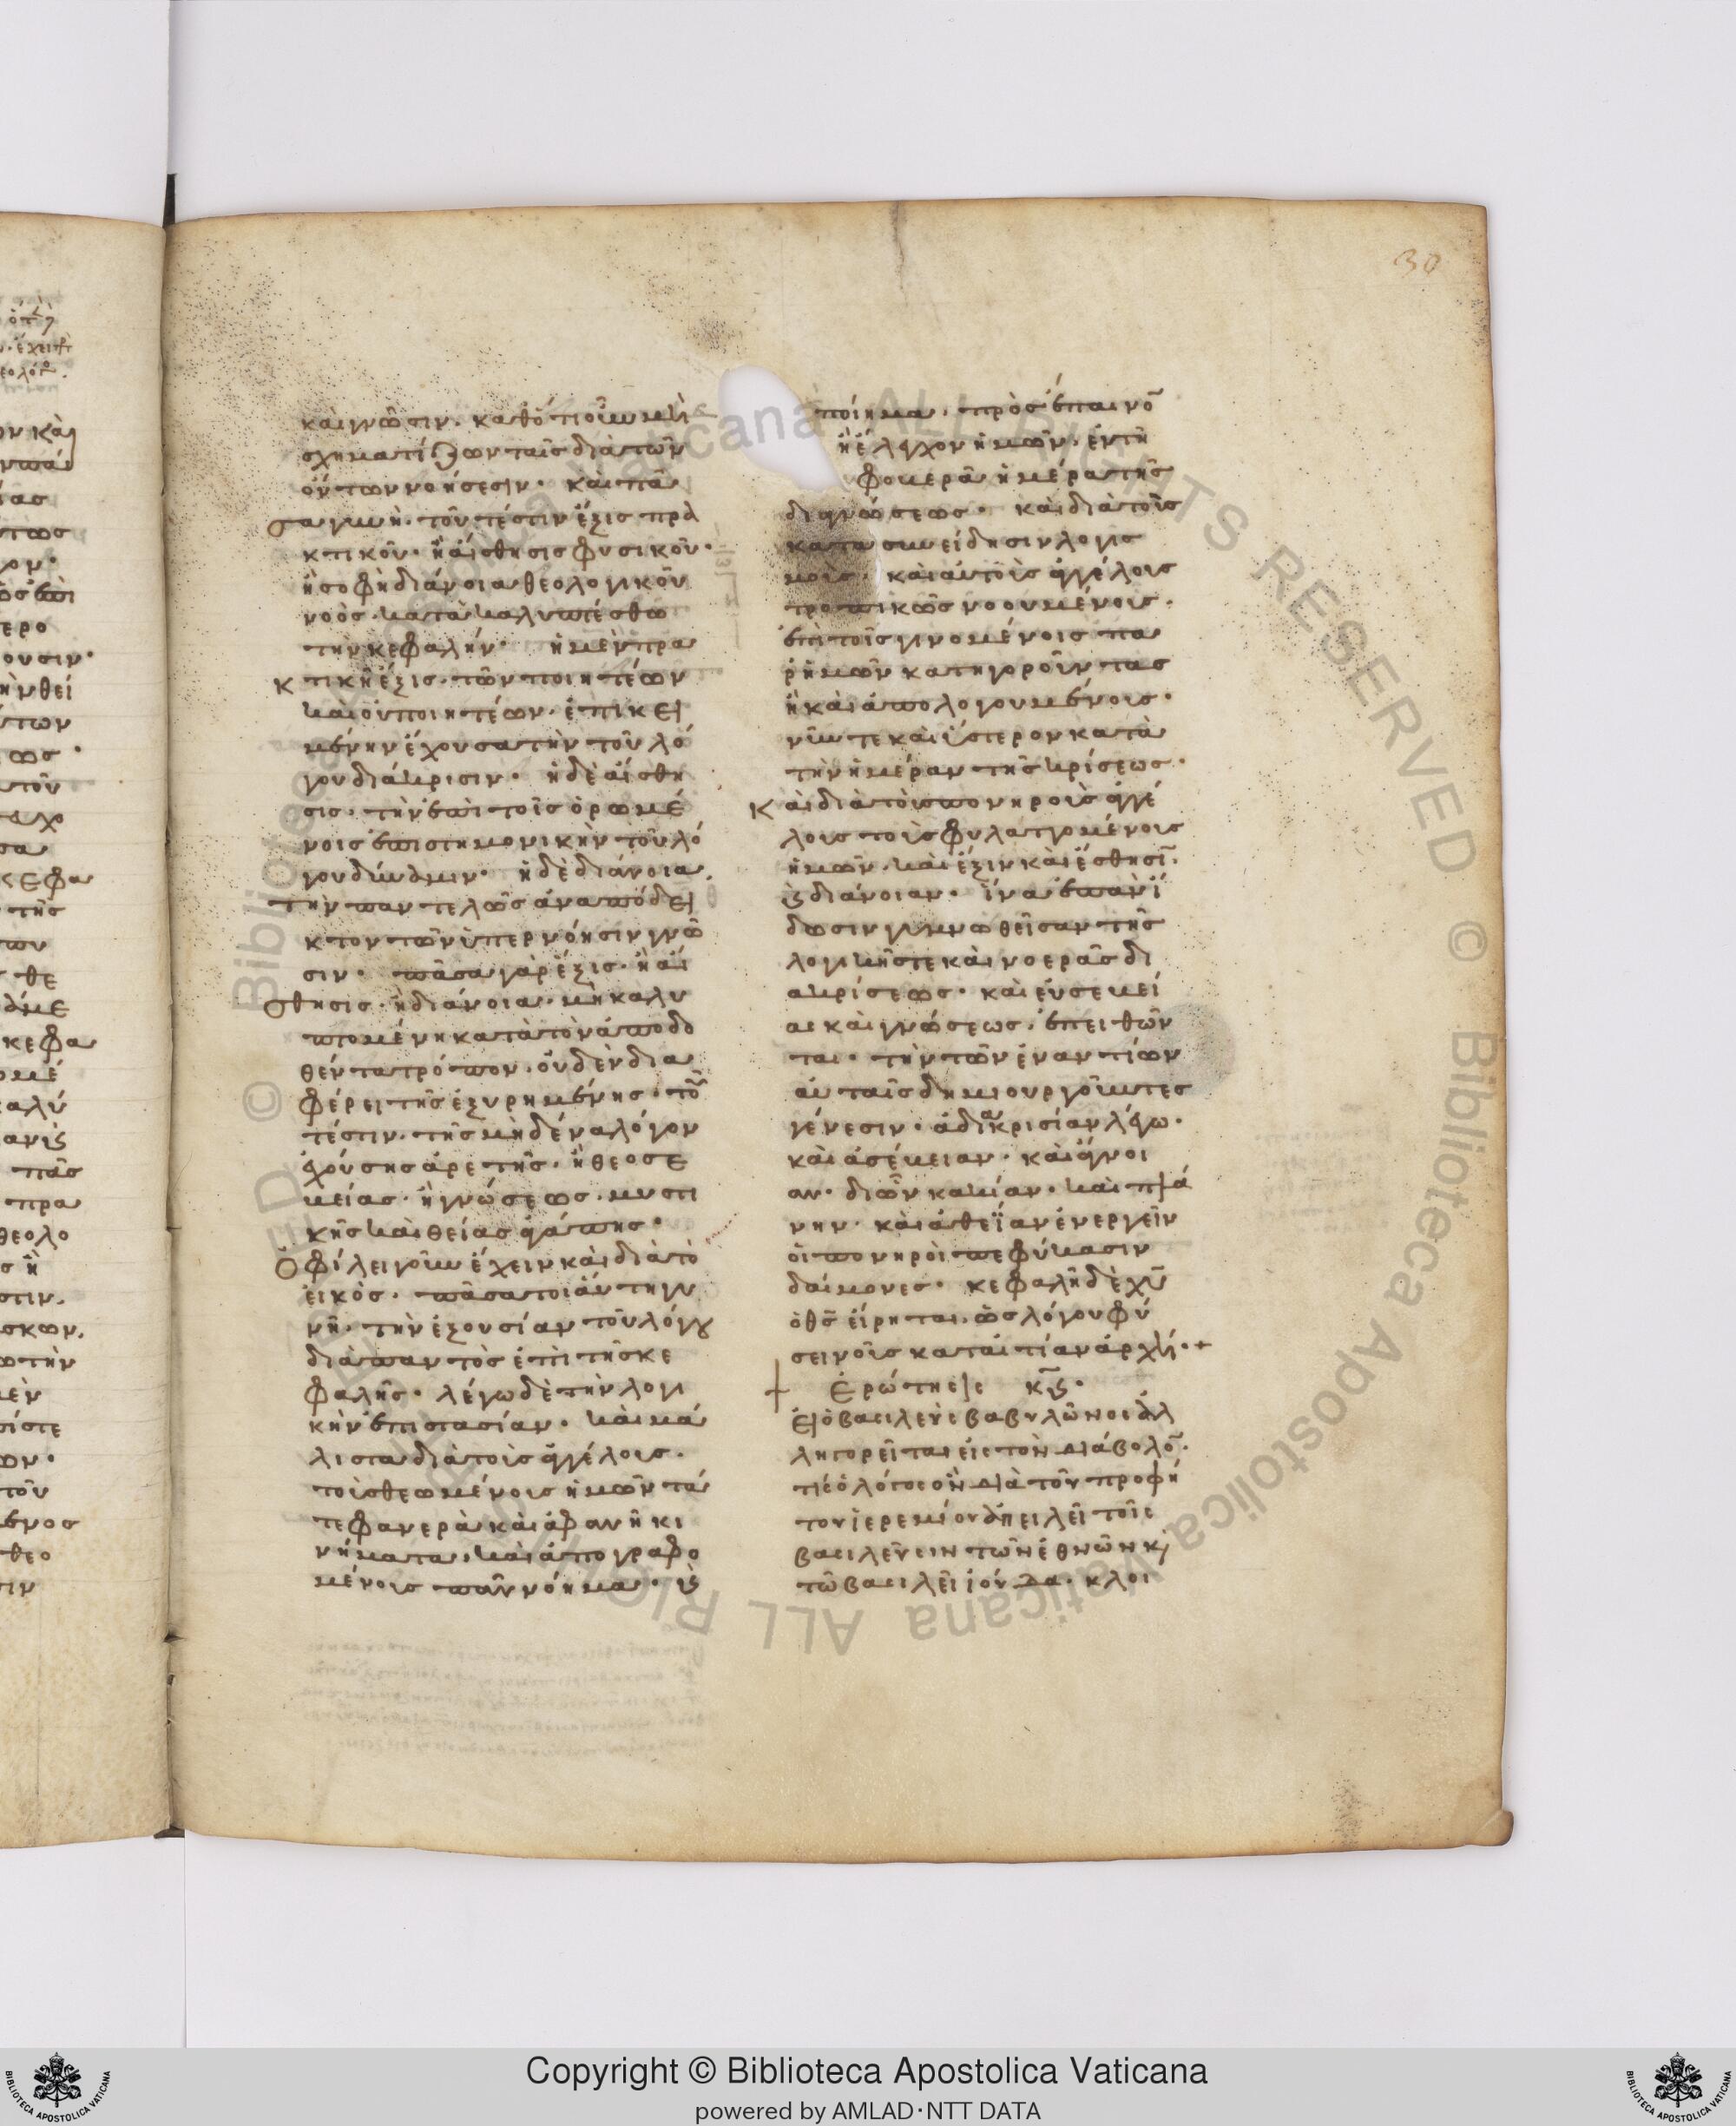 30
καὶ γνῶσιν. καθότι οὖν μὴ
σχηματίζων ταῖς διὰ τῶν
ὄντων νοήσεσιν. καὶ πᾶ
σα γυνὴ. τοῦτέστιν ἕξις πρα
κτικοῦ. ἢ αἴσθησις φυσικοῦ.
ἢ σοφὴ διάνοια θεολογικοῦ
νοὸς. κατακαλυπτέσθω
τὴν κεφαλήν. ἡ μὲν πρα
κτικὴ ἕξις. τῶν ποιητέων
καὶ οὐ ποιητέων. ἐπικει
μένην ἔχουσα τὴν τοῦ λό
γου διάκρισιν. ἡ δὲ αἴσθη
σις. τὴν ἐπὶ τοῖς ὁρωμέ
νοις ἐπιστημονικὴν τοῦ λό
γου δύναμιν. ἡ δὲ διάνοια.
τὴν παντελῶς ἀναπόδει
κτον τῶν ὑπερ νόησιν γνῶ
σιν. πᾶσα γὰρ ἕξις. ἢ αἴ
σθησις. ἢ διάνοια. μὴ καλυ
πτομένη κατὰ τὸν ἀποδο
θέντα τρόπον. οὐδὲν δια
φέρει τῆς ἐξυρημένης. τοῦ
τέστιν. τῆς μὴδένα λόγον
ἐχούσης ἀρετῆς. ἢ θεοσε
βείας. ἢ γνώσεως. μυστι
κῆς καὶ θείας ἀγάπης.
Ὀφίλει γοῦν ἔχειν καὶ διὰ τὸ
εἰκὸς. πᾶσα τοιαύτη γυ
νὴ. τὴν ἐξουσίαν τοῦ λόγου
διὰ παντὸς ἐπὶ τῆς κε
φαλῆς. λέγω δὲ τὴν λογι
κὴν ἐπιστασίαν. καὶ μά
λιστα διὰ τοὺς ἀγγέλους.
τοὺς θεωμένους ἡμῶν τά
τε φανερὰ καὶ ἀφανῆ κι
νήματα. καὶ ἀπογραφο
μένους πᾶν νόημα. καὶ
ποίημα. πρὸς ἔπαινον
ἢ ἔλεγχον ἡμῶν. ἐν τῇ
φοβερᾷ ἡμέρα τῆς
διαγνώσεως. καὶ διὰ τοὺς
κατα συνείδησιν λογισ
μοὺς. καὶ αὐτοὺς ἀγγέλους
τροπικῶς νοουμένους.
ἐπὶ τοῖς γινομένοις πα
ρ' ἡμῶν κατηγοροῦντας
ἢ καὶ ἀπολογουμένους.
νῦν τε καὶ ὕστερον κατὰ
τὴν ἡμέραν τῆς κρίσεως.
Καὶ διὰ τοὺς πονηροὺς ἀγγέ
λους τοὺς φυλαττομένους
ἡμῶν. καὶ ἕξιν καὶ ἔσθησιν.
καὶ διάνοιαν. ἵνα ἐπὰν ἴ
δωσιν γυμνωθεῖσαν τῆς
λογικῆς τε καὶ νοερᾶς δι
ακρίσεως. καὶ εὐσεβεί
ας καὶ γνώσεως. ἐπειθῶν
ται. τὴν τῶν ἐναντίων
αὐταῖς δημιουργοῦντες
γένεσιν. ἀδιακρισίαν λέγω.
καὶ ἀσέβειαν. καὶ ἄγνοι
αν. δι ὧν κακίαν. καὶ πλά
νην. καὶ ἀθεΐαν ἐνεργεῖν
οἱ πονηροὶ πεφύκασιν
δαίμονες. κεφαλὴ δὲ χῦ
ὁ θς εἴρηται. ὡς λόγου φύ
σει νοῦς κατ αἰτίαν ἀρχή. +
+ Ἐρώτησις κς.
Εἰ ὁ βασιλεὺς βαβυλῶνος ἀλ
ληγορεῖται εἰς τὸν διάβολον.
τίς ὁ λόγος ὃν διὰ τοῦ προφή
του ἱερεμίου ἀπειλεῖ τοῖς
βασιλεῦσιν τῶν ἐθνῶν καὶ
τῶ βασιλεῖ ἰούδα. κλοι
Copyright © Biblioteca Apostolica Vaticana
powered by AMLAD·NTT DATA